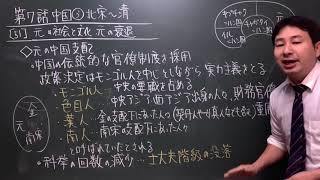 第7話 中国③ 北宋～清
[51] 元の社会と文化 元の衰退
◇元の中国支配
・中国の伝統的な官僚制度を採用
政策決定はモンゴル人を中心としながら実力主義をとる
・モンゴル人… 中央の要職を占める
・色目人… 中央アジア・西アジア出身の人々、財務官僚
・漢人… 金の支配下にあった人々
・南人… 南宋の支配下にあった人々
と呼ばれていたとされる
・科挙の回数の減少…士大夫階級の没落
元
金
南宋
ハン国
ハン国